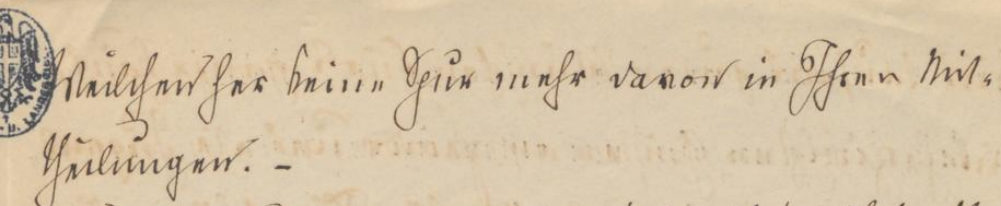 Weilchen her keine Spur mehr davon in Ihren Mit-
theilungen. –